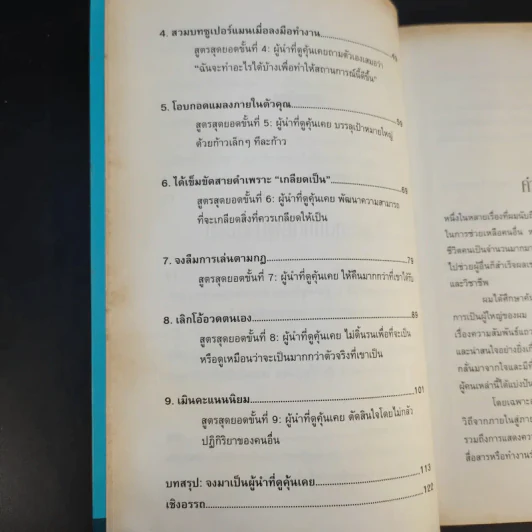 4. สวมบทซูเปอร์แมนเมื่อลงมือทำงาน
สูตรสุดยอดขั้นที่ 4: ผู้นำที่ดูคุ้นเคยถามตัวเองเสมอว่า
"ฉันจะทำอะไรได้บ้างเพื่อทำให้สถานการณ์นี้ดีขึ้น"
5. โอบกอดแมลงภายในตัวคุณ
สูตรสุดยอดขั้นที่ 5: ผู้นำที่ดูคุ้นเคย บรรลุเป้าหมายใหญ่
ด้วยก้าวเล็กๆ ทีละก้าว
6. ได้เข็มขัดสายดำเพราะ "เกลียดเป็น" 69
สูตรสุดยอดขั้นที่ 6: ผู้นำที่ดูคุ้นเคย พัฒนาความสามารถ
ที่จะเกลียดสิ่งที่ควรเกลียดให้เป็น
7. จงลืมการเล่นตามกฎ 79
สูตรสุดยอดขั้นที่ 7: ผู้นำที่ดูคุ้นเคย ให้คืนมากกว่าที่เขาได้รับ
8. เลิกโอ้อวดตนเอง 89
สูตรสุดยอดขั้นที่ 8: ผู้นำที่ดูคุ้นเคย ไม่ดิ้นรนเพื่อที่จะเป็น
หรือดูเหมือนว่าจะเป็นมากกว่าตัวจริงที่เขาเป็น
9. เมินคะแนนนิยม 101
สูตรสุดยอดขั้นที่ 9: ผู้นำที่ดูคุ้นเคย ตัดสินใจโดยไม่กลัว
ปฏิกิริยาของคนอื่น
บทสรุป: จงมาเป็นผู้นำที่ดูคุ้นเคย 113
เชิงอรรถ 122
หนึ่งในหลายเรื่องที่ผมนับถือ
ในการช่วยเหลือคนอื่น
ชีวิตคนเป็นจำนวนมากมา
ไปช่วยผู้อื่นก็สำเร็จผล
และวิชาชีพ
ผมได้ศึกษา
การเป็นผู้ใหญ่ของผม
เรื่องความสัมพันธ์
และน่าสนใจอย่างยิ่ง
กลั่นมาจากใจและมี
ผู้คนเหล่านี้ได้แบ่งปัน
โดยเฉพาะ
วิถีจากภายในสู่ภาย
รวมถึงการแสดงความ
สื่อสารหรือทำงาน